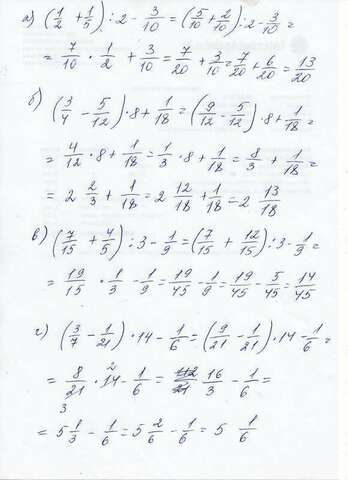 а) (1/2 + 1/5) : 2 - 3/10 = (5/10 + 2/10) : 2 - 3/10 =
= 7/10 · 1/2 + 3/10 = 7/20 + 3/10 = 7/20 + 6/20 = 13/20
б) (3/4 - 5/12) · 8 + 1/18 = (9/12 - 5/12) · 8 + 1/18 =
= 4/12 · 8 + 1/18 = 1/3 · 8 + 1/18 = 8/3 + 1/18 =
= 2 2/3 + 1/18 = 2 12/18 + 1/18 = 2 13/18
в) (7/15 + 4/5) : 3 - 1/9 = (7/15 + 12/15) : 3 - 1/9 =
= 19/15 · 1/3 - 1/9 = 19/45 - 1/9 = 19/45 - 5/45 = 14/45
г) (3/7 - 1/21) · 14 - 1/6 = (9/21 - 1/21) · 14 - 1/6 =
= 8/21 · 14 - 1/6 = 16/3 - 1/6 =
= 5 1/3 - 1/6 = 5 2/6 - 1/6 = 5 1/6